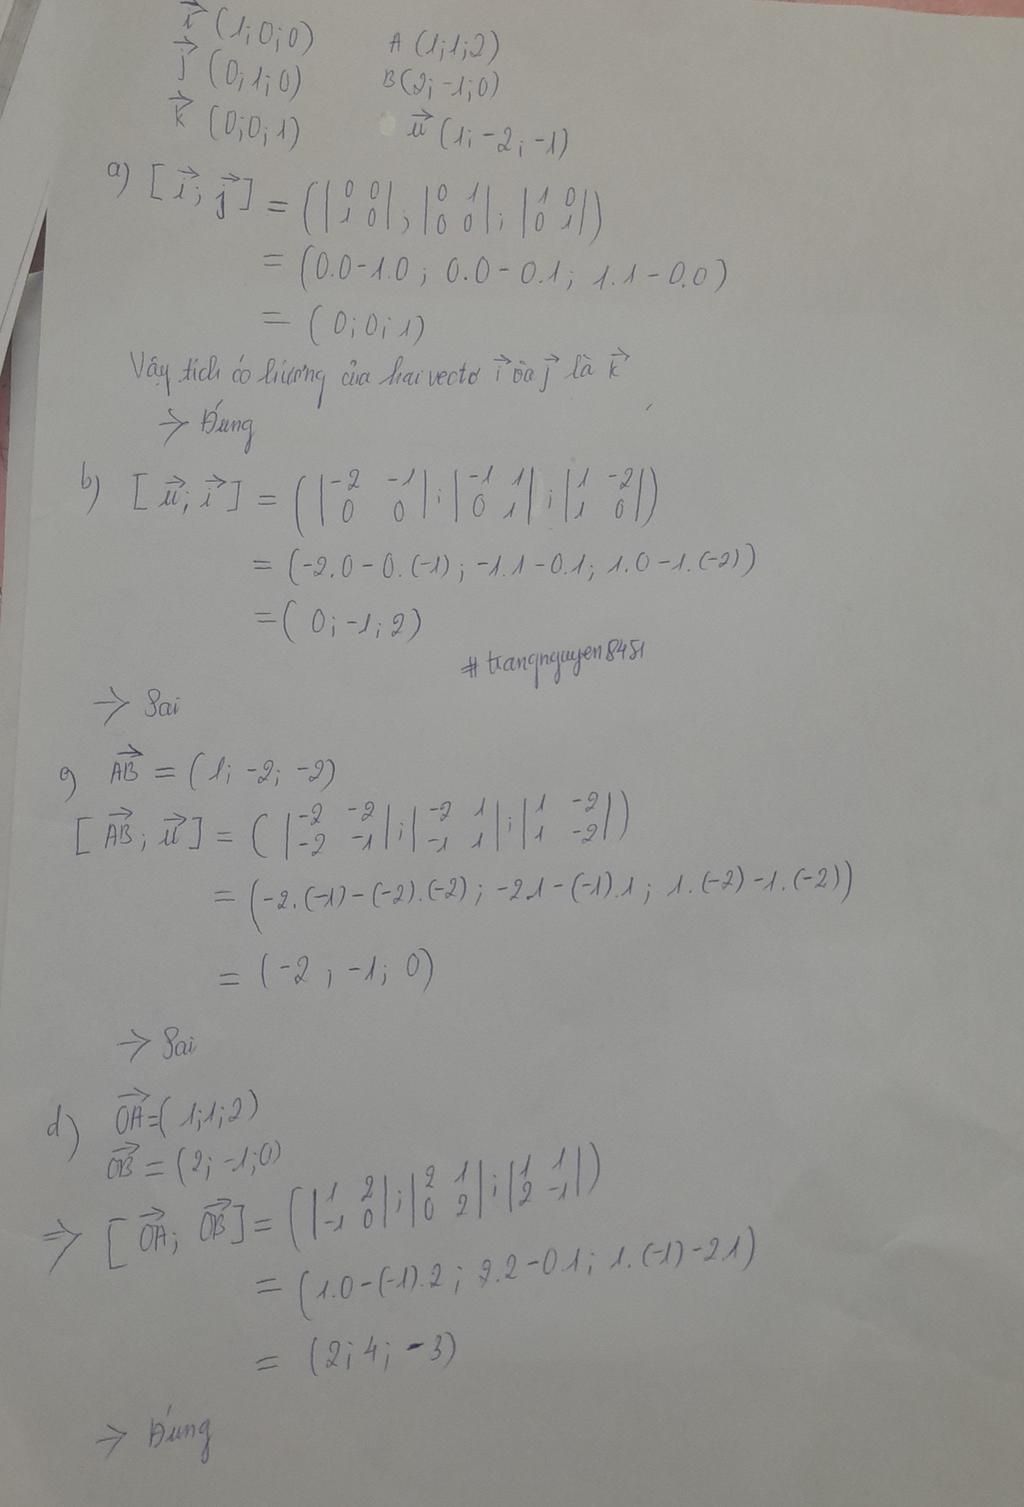 i⃗ (1;0;0) A (1;1;2)
j⃗ (0;1;0) B(2;-1;0)
k⃗ (0;0;1) u⃗ (1;-2;-1)
a) [i⃗; j⃗] = (|0 0; 1 0|; |0 1; 0 0|; |1 0; 0 1|)
= (0.0-1.0; 0.0-0.1; 1.1-0.0)
= (0;0;1)
Vậy tích có hướng của hai vectơ i⃗ và j⃗ là k⃗
→ Đúng
b) [u⃗; i⃗] = (|-2 -1; 0 0|; |-1 1; 0 1|; |1 -2; 1 0|)
= (-2.0-0.(-1); -1.1-0.1; 1.0-1.(-2))
= (0;-1;2)
#trangnguyen8451
→ Sai
c) AB⃗ = (1;-2;-2)
[AB⃗; u⃗] = (|-2 -2; -2 -1|; |-2 1; -1 1|; |1 -2; 1 -2|)
= (-2.(-1)-(-2).(-2); -2.1-(-1).1; 1.(-2)-1.(-2))
= (-2; -1; 0)
→ Sai
d) OA⃗=(1;1;2)
OB⃗ = (2;-1;0)
⇒ [OA⃗; OB⃗] = (|1 2; -1 0|; |2 1; 0 2|; |1 1; 2 -1|)
= (1.0-(-1).2; 2.2-0.1; 1.(-1)-2.1)
= (2;4;-3)
→ Đúng